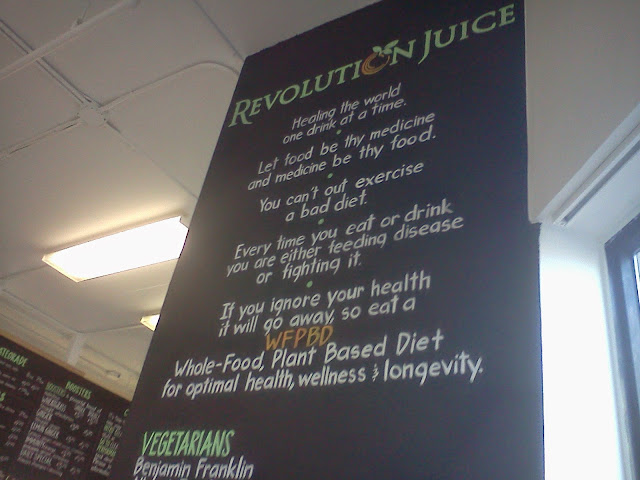 REVOLUTION JUICE
Healing the world
one drink at a time.
Let food be thy medicine
and medicine be thy food.
You can't out exercise
a bad diet.
Every time you eat or drink
you are either feeding disease
or fighting it.
If you ignore your health
it will go away, so eat a
WFPBD
Whole-Food, Plant Based Diet
for optimal health, wellness & longevity.
VEGETARIANS
Benjamin Franklin
BOOSTERS